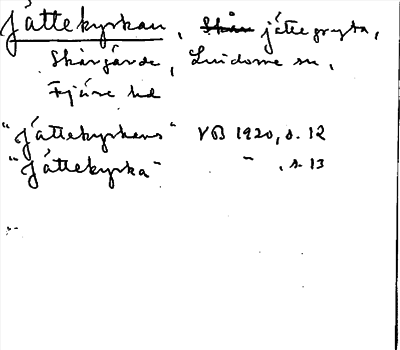 Jättekyrkan, Skår jättegryta,
Skårgärde, Lindome sn,
Fjäre hd
"Jättekyrkans" VB 1920, s. 12
"Jättekyrka" – " – , s. 13